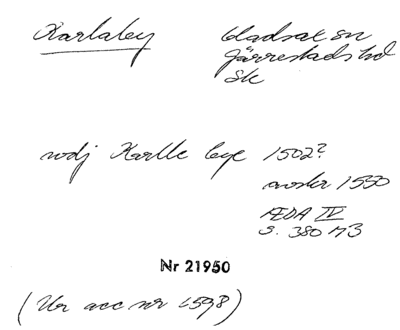 Karlaby
Gladsax sn
Järrestads hd
Sk
wdj Karlle bye 1502?
avskr 1550
ÆDA IV
s. 380 N3
Nr 21950
(Ur acc nr 4598)